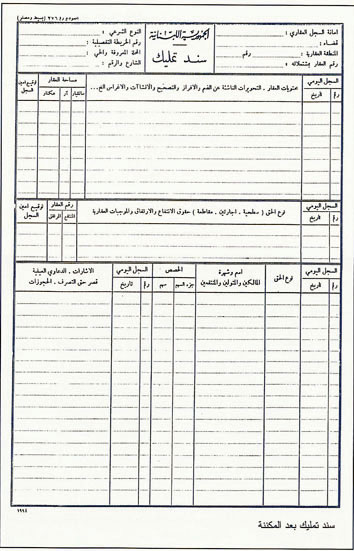 الجمهورية اللبنانية
سند تمليك
امانة السجل العقاري :
قضاء :
المنطقة العقارية : رقم
رقم العقار
النوع الشرعي :
رقم الخريطة التفصيلية :
المحلة المعروفة والحي :
الشارع والرقم :
السجل اليومي
رقم تاريخ
محتويات العقار . التحويرات الناشئة عن الضم والافراز والتصحيح والانشاآت والاغراس الخ...
مساحة العقار
هكتار آر سانتيار
توقيع امين السجل
السجل اليومي
رقم تاريخ
نوع الحق ( سطحية . اجارتين . مقاطعة ) حقوق الانتفاع والارتفاق والموجبات العقارية
رقم العقار
المنتفع المرتفق
توقيع امين السجل
السجل اليومي
رقم تاريخ
نوع الحق
اسم وشهرة
المالكين والمتولين والمنتفعين
الحصص
جزء السهم سهم
السجل اليومي
رقم تاريخ
الاشارات . الدعاوي العينية
قصر حق التصرف . الحجوزات
١٩٩٤
سند تمليك بعد المكننة